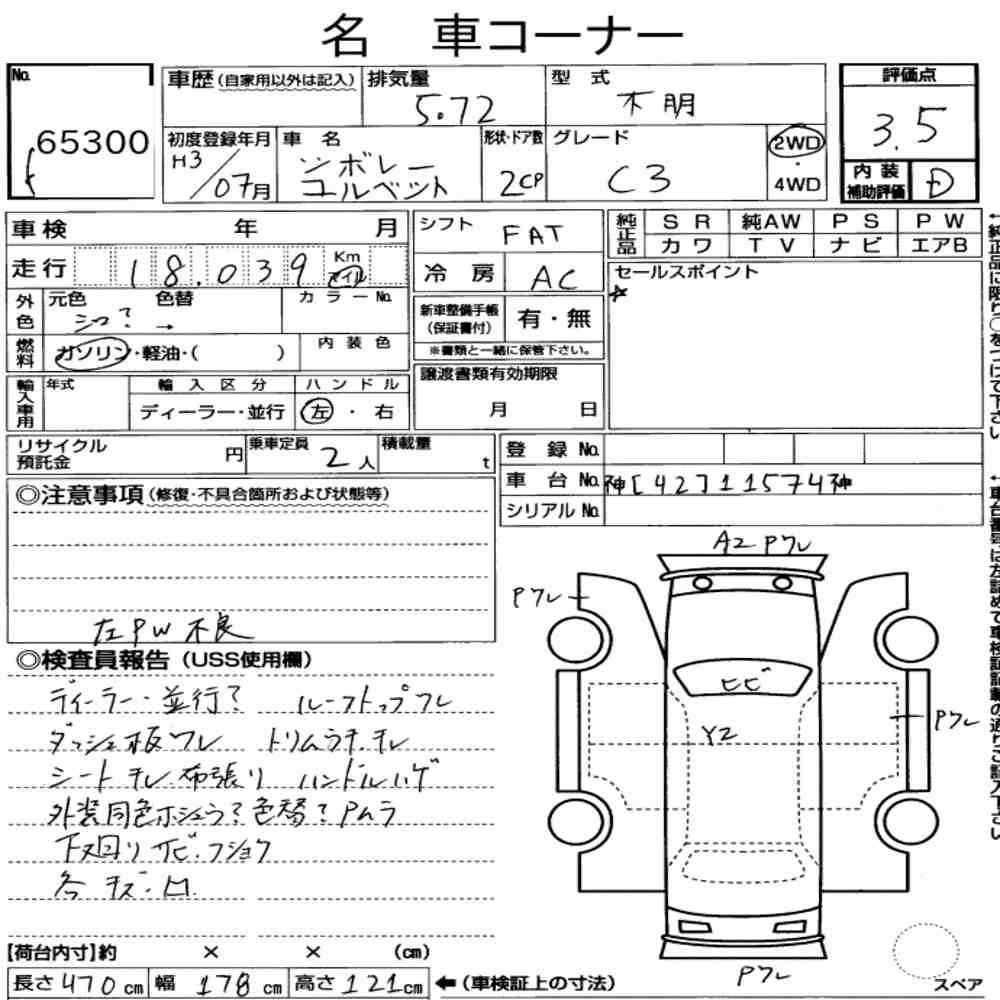 名 車コーナー
No.
65300
車歴(自家用以外は記入)
排気量
5.72
型 式
不明
評価点
3.5
初度登録年月
H3/07月
車 名
シボレー
コルベット
形状・ドア数
2CP
グレード
C3
2WD
・
4WD
内 装
補助評価
D
車検 年 月
走行 18.039 Km マイル
外色
元色 色替
シロ? →
カラーNo.
燃料
ガソリン・軽油・( )
内 装 色
輸入車用
年式
輸 入 区 分
ディーラー・並行
ハ ン ド ル
左 ・ 右
シフト FAT
冷 房 AC
新車整備手帳
(保証書付)
有・無
※書類と一緒に保管下さい。
譲渡書類有効期限
月 日
純正品
S R 純AW P S P W
カ ワ T V ナ ビ エアB
セールスポイント
☆
←純正品に限り○をつけて下さい
リサイクル
預託金
円
乗車定員
2人
積載量
t
登 録 No.
車 台 No. 神[42]11574神
シリアル No.
◎注意事項(修復・不具合箇所および状態等)
左PW不良
◎検査員報告(USS使用欄)
ディーラー・並行? ルーフトップワレ
ダッシュ板ワレ トリムウチ、テレ
シートテレ、布張り ハンドルハゲ
外装同色ホシュウ?色替?Pムラ
下回りサビ・フショク
各キズ・凹
A2 Pワレ
Pワレ
ヒビ
Y2
Pワレ
Pワレ
スペア
【荷台内寸】約 × × (cm)
長さ470cm 幅 178cm 高さ121cm
←(車検証上の寸法)